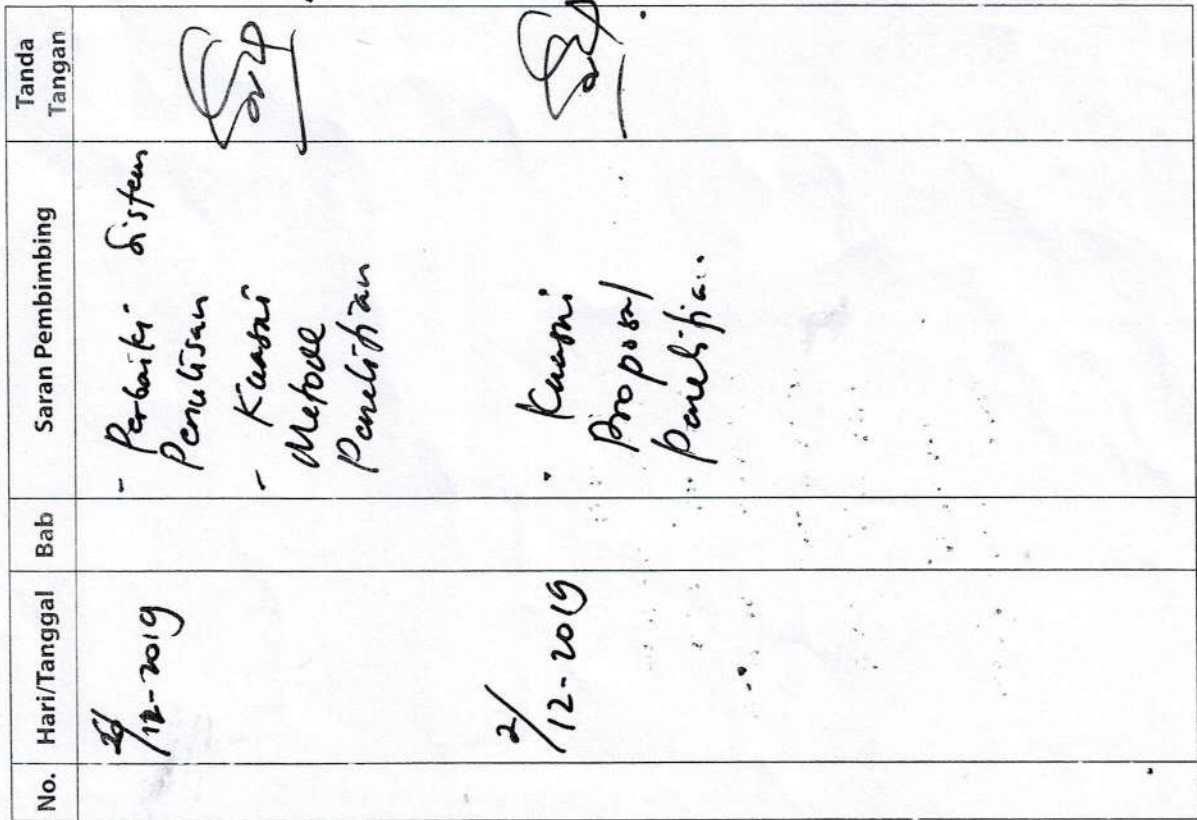 No. Hari/Tanggal Bab Saran Pembimbing Tanda Tangan
/12-2019
- Perbaiki sistem
Penulisan
- Kuasai
Metode
Penelitian
2/12-2019
- Kuasai
Proposal
penelitian.